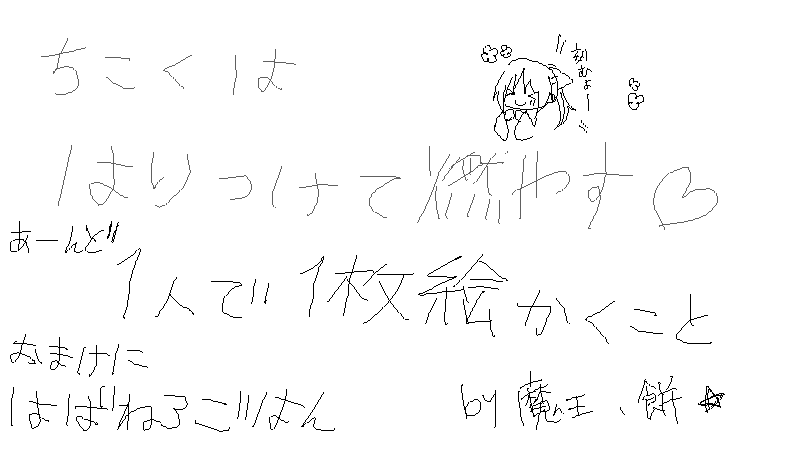 ちこくは
刻むよー
はりつけて燃やす♡
あーんど
1人で1枚絵かくこと
おまけに
はばねろごはん
by 魔王、餅☆